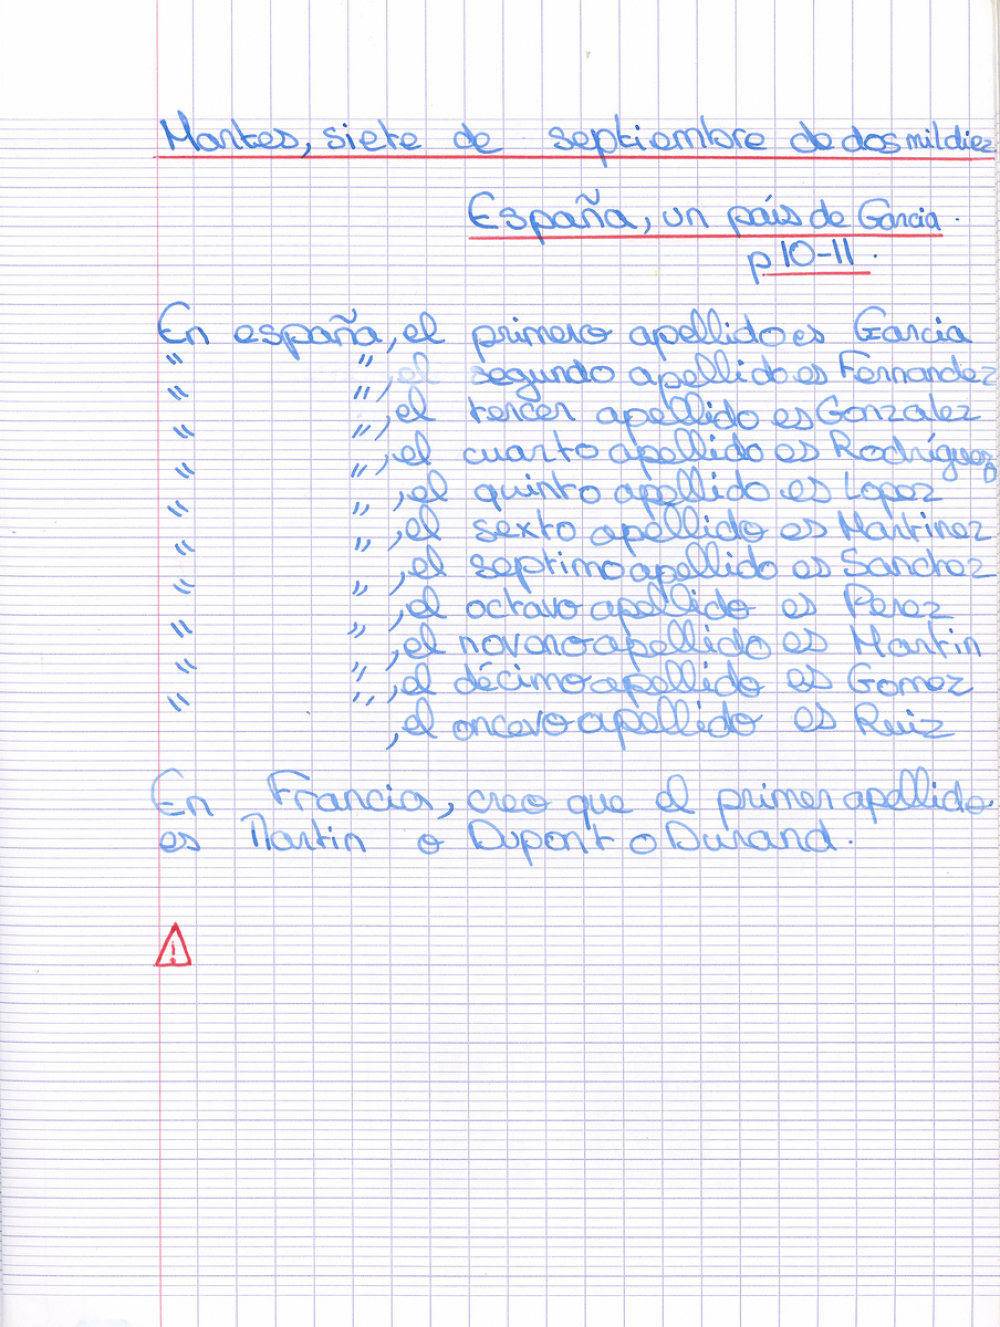 Martes, siete de septiembre de dos mil diez
España, un país de Garcia.
p 10-11.
En españa, el primero apellido es Garcia
" ", el segundo apellido es Fernandez
" ", el tercer apellido es Gonzalez
" ", el cuarto apellido es Rodríguez
" ", el quinto apellido es Lopez
" ", el sexto apellido es Martinez
" ", el septimo apellido es Sanchez
" ", el octavo apellido es Perez
" ", el noveno apellido es Martin
" ", el décimo apellido es Gomez
" ", el oncevo apellido es Ruiz
En Francia, creo que el primer apellido
es Martin o Dupont o Durand.